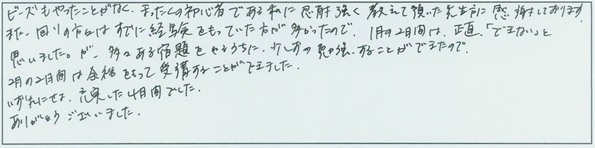 ビーズもやったことがなく、まったくの初心者である私に忍耐強く教えて頂いた先生に感謝しております。
また、回りの方々はすでに経験をもっていた方が多かったので、1月の2日間は、正直、「できない」と
思いました。が、多々ある宿題をやるうちに、少しずつ勉強することができたので、
2月の2日間は余裕をもって受講することができました。
いずれにせよ、充実した4日間でした。
ありがとうございました。